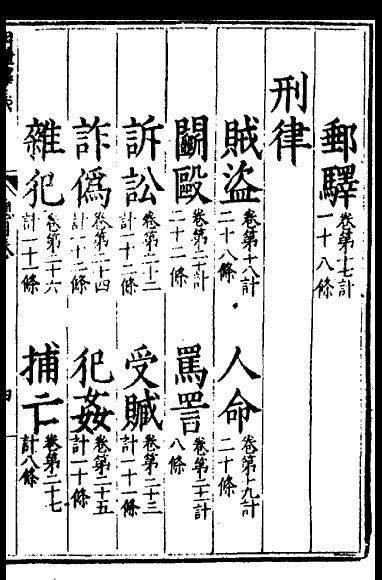 郵驛卷第十七計一十八條
刑律
賊盜卷第十八計二十八條
人命卷第十九計二十條
鬭毆卷第二十計二十二條
罵詈卷第二十一計八條
訴訟卷第二十二計一十二條
受贓卷第二十三計一十一條
詐偽卷第二十四計一十二條
犯姦卷第二十五計一十條
雜犯卷第二十六計一十一條
捕亡卷第二十七計八條
四